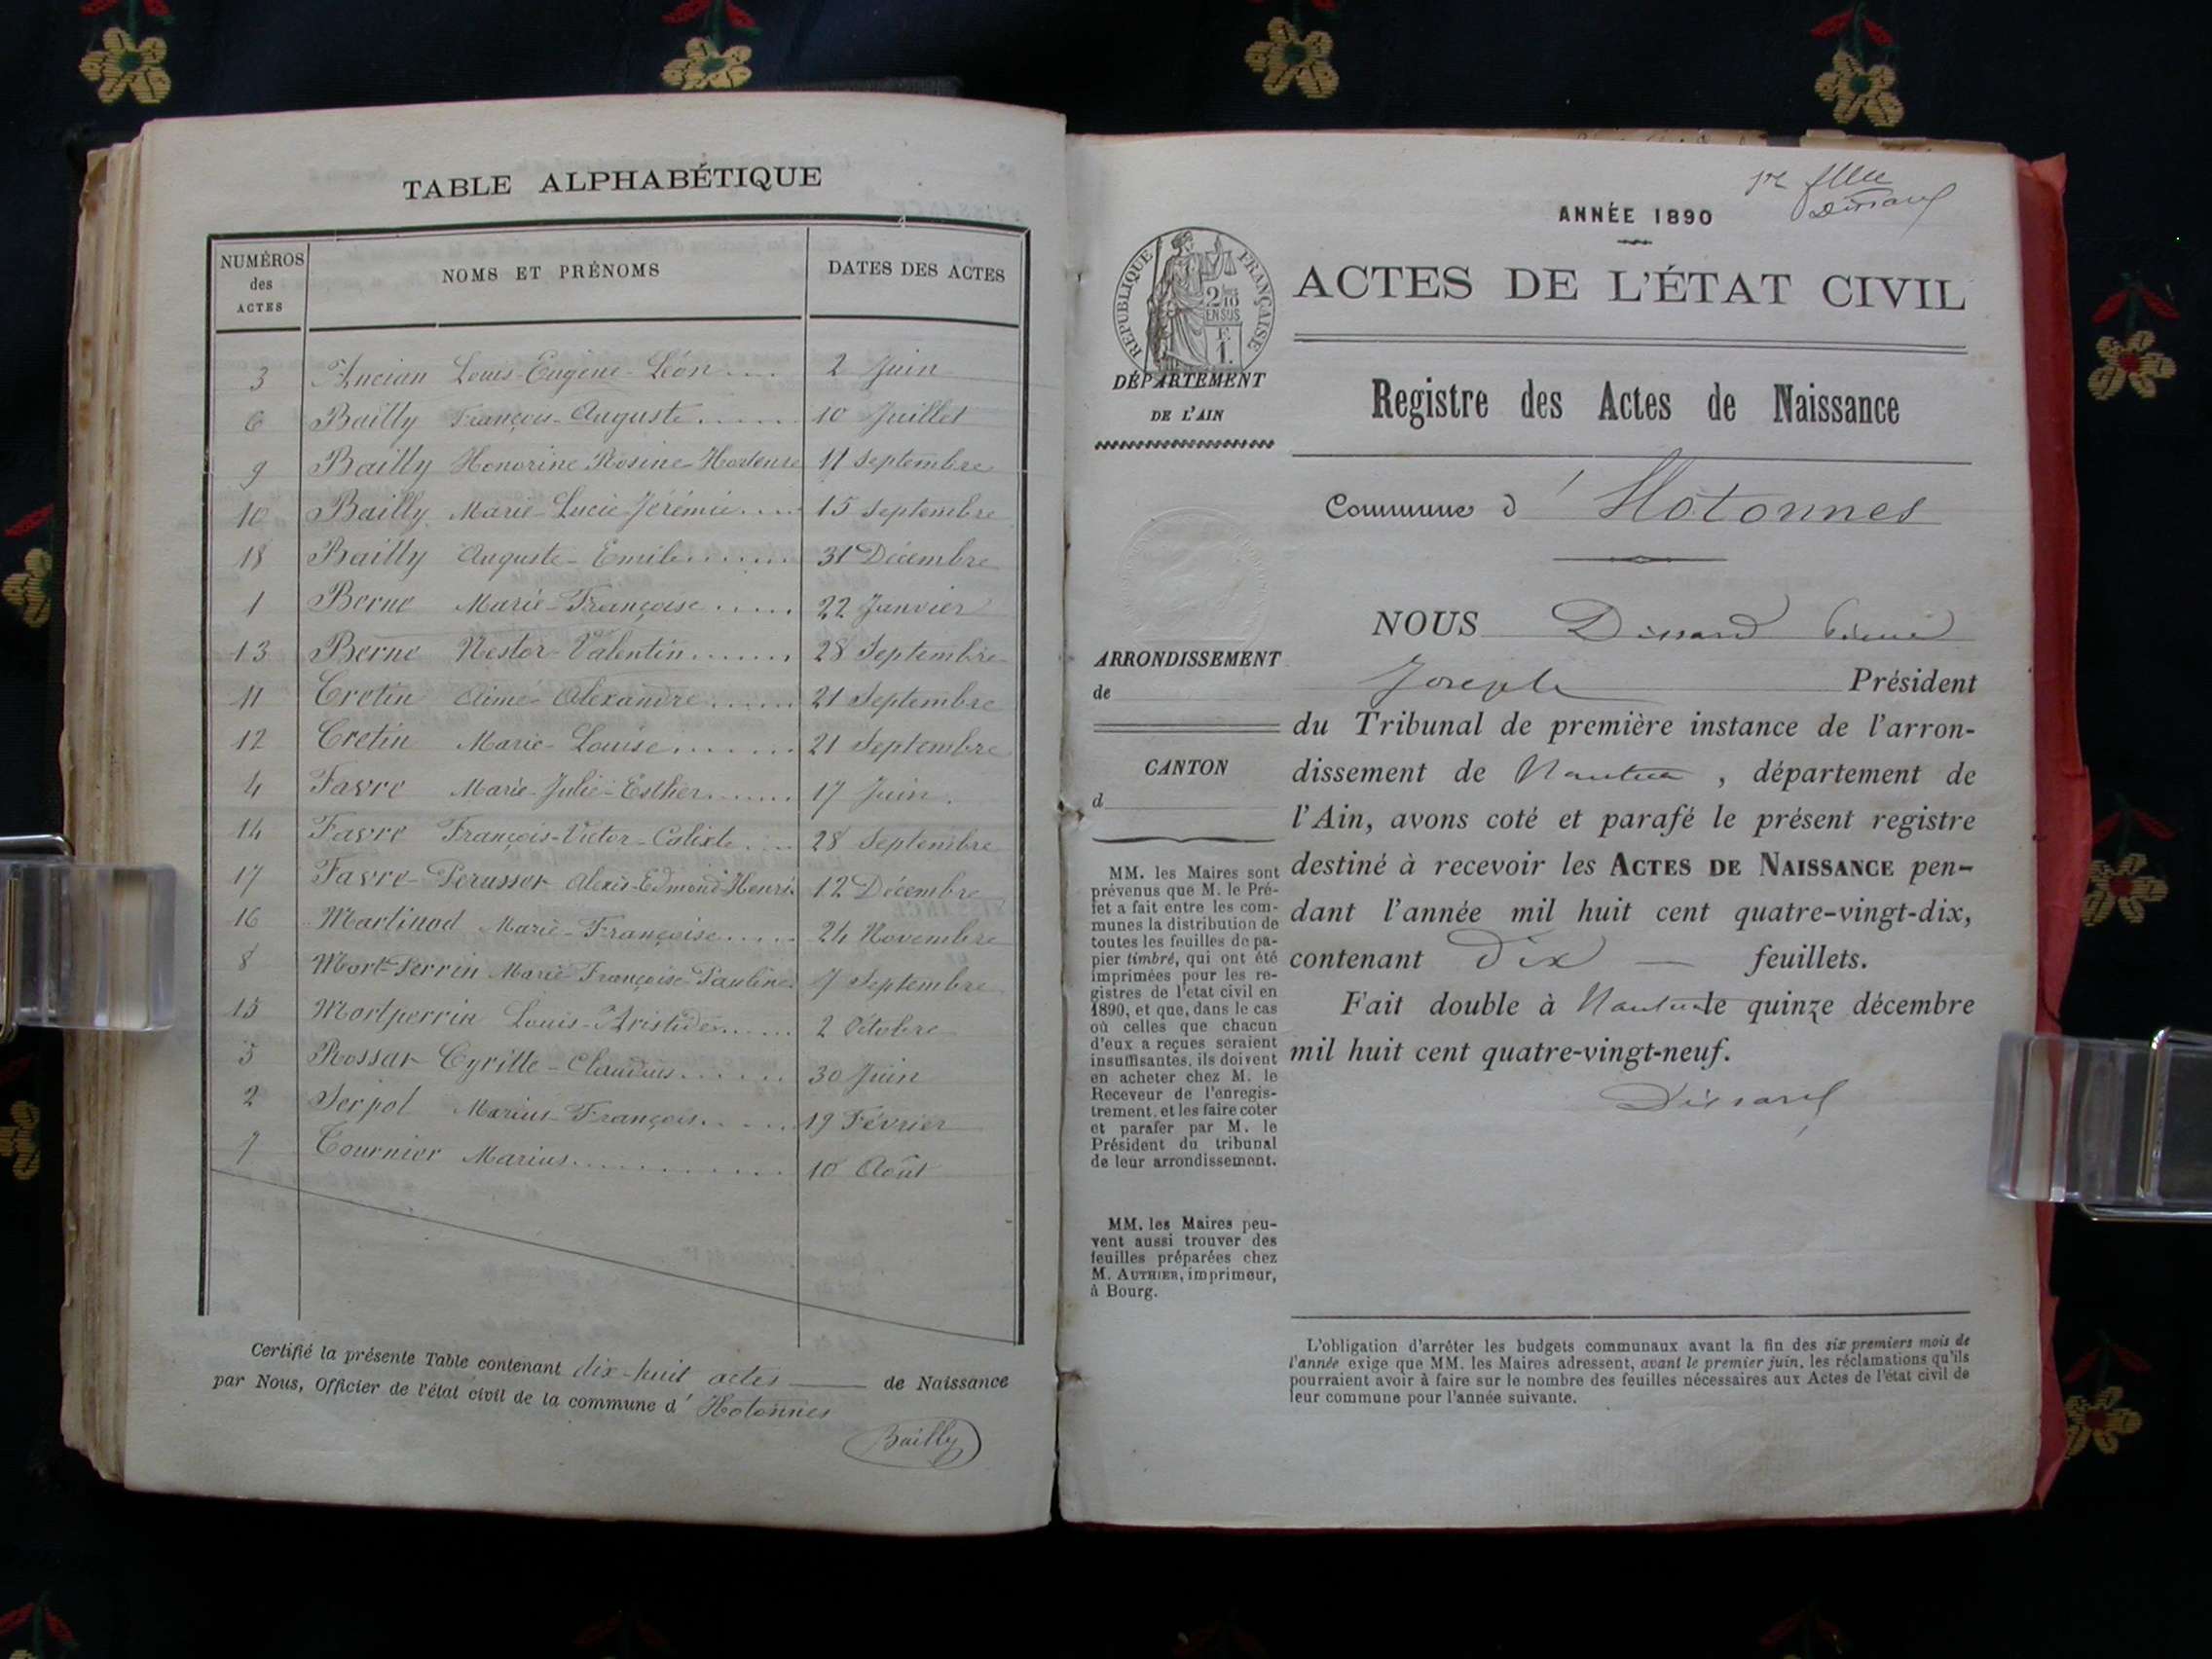 TABLE ALPHABÉTIQUE
NUMÉROS des ACTES NOMS ET PRÉNOMS DATES DES ACTES
3 Ancian Louis-Eugène-Léon.... 2 Juin
6 Bailly François-Auguste...... 10 Juillet
9 Bailly Honorine Rosine-Hortense 11 Septembre
10 Bailly Marie-Lucie Jérémie.... 15 Septembre
18 Bailly Auguste-Emile....... 31 Décembre
1 Berne Marie-Françoise..... 22 Janvier
13 Berne Nestor-Valentin....... 28 Septembre
11 Cretin Aimé-Alexandre...... 21 Septembre
12 Cretin Marie-Louise....... 21 Septembre
4 Favre Marie-Julie-Esther....... 17 Juin.
14 Favre François-Victor-Calixte.... 28 Septembre
17 Favre-Perusser Alexis-Edmond Henri. 12 Décembre
16 Martinod Marie-Françoise..... 24 Novembre
8 Mort-Perrin Marie Françoise Pauline. 7 Septembre
15 Mortperrin Louis-Aristides..... 2 Octobre
5 Rossar Cyrille-Claudius...... 30 Juin
2 Serpol Marius-François..... 19 Février
7 Tournier Marius............ 10 Août
Certifié la présente Table contenant dix-huit actes de Naissance
par Nous, Officier de l'état civil de la commune d' Hotonnes
Bailly
Dissard
ANNÉE 1890
RÉPUBLIQUE FRANÇAISE
2/10
EN SUS
E
1.
ACTES DE L'ÉTAT CIVIL
DÉPARTEMENT
DE L'AIN
Registre des Actes de Naissance
Commune d' Hotonnes
ARRONDISSEMENT
de
CANTON
d
MM. les Maires sont
prévenus que M. le Pré-
fet a fait entre les com-
munes la distribution de
toutes les feuilles de pa-
pier timbré, qui ont été
imprimées pour les re-
gistres de l'état civil en
1890, et que, dans le cas
où celles que chacun
d'eux a reçues seraient
insuffisantes, ils doivent
en acheter chez M. le
Receveur de l'enregis-
trement, et les faire coter
et parafer par M. le
Président du tribunal
de leur arrondissement.
MM. les Maires peu-
vent aussi trouver des
feuilles préparées chez
M. AUTHIER, imprimeur,
à Bourg.
NOUS Dissard
Joseph Président
du Tribunal de première instance de l'arron-
dissement de Nantua, département de
l'Ain, avons coté et parafé le présent registre
destiné à recevoir les ACTES DE NAISSANCE pen-
dant l'année mil huit cent quatre-vingt-dix,
contenant dix — feuillets.
Fait double à Nantua le quinze décembre
mil huit cent quatre-vingt-neuf.
Dissard
L'obligation d'arrêter les budgets communaux avant la fin des six premiers mois de
l'année exige que MM. les Maires adressent, avant le premier juin, les réclamations qu'ils
pourraient avoir à faire sur le nombre des feuilles nécessaires aux Actes de l'état civil de
leur commune pour l'année suivante.